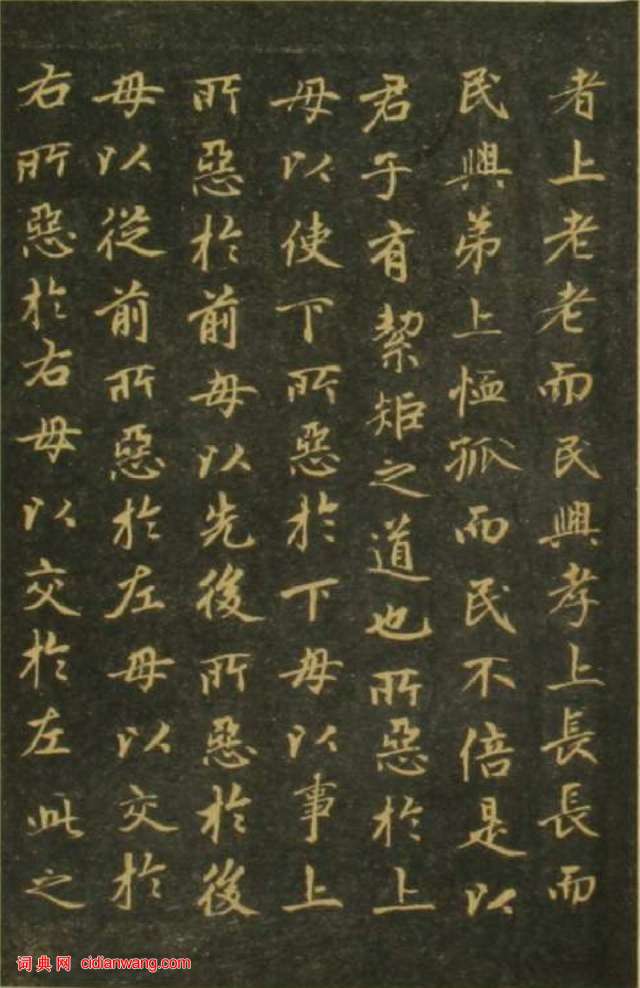 者上老老而民興孝上長長而
民興弟上恤孤而民不倍是以
君子有絜矩之道也所惡於上
毋以使下所惡於下毋以事上
所惡於前毋以先後所惡於後
毋以從前所惡於左毋以交於
右所惡於右毋以交於左此之
词典网 cidianwang.com